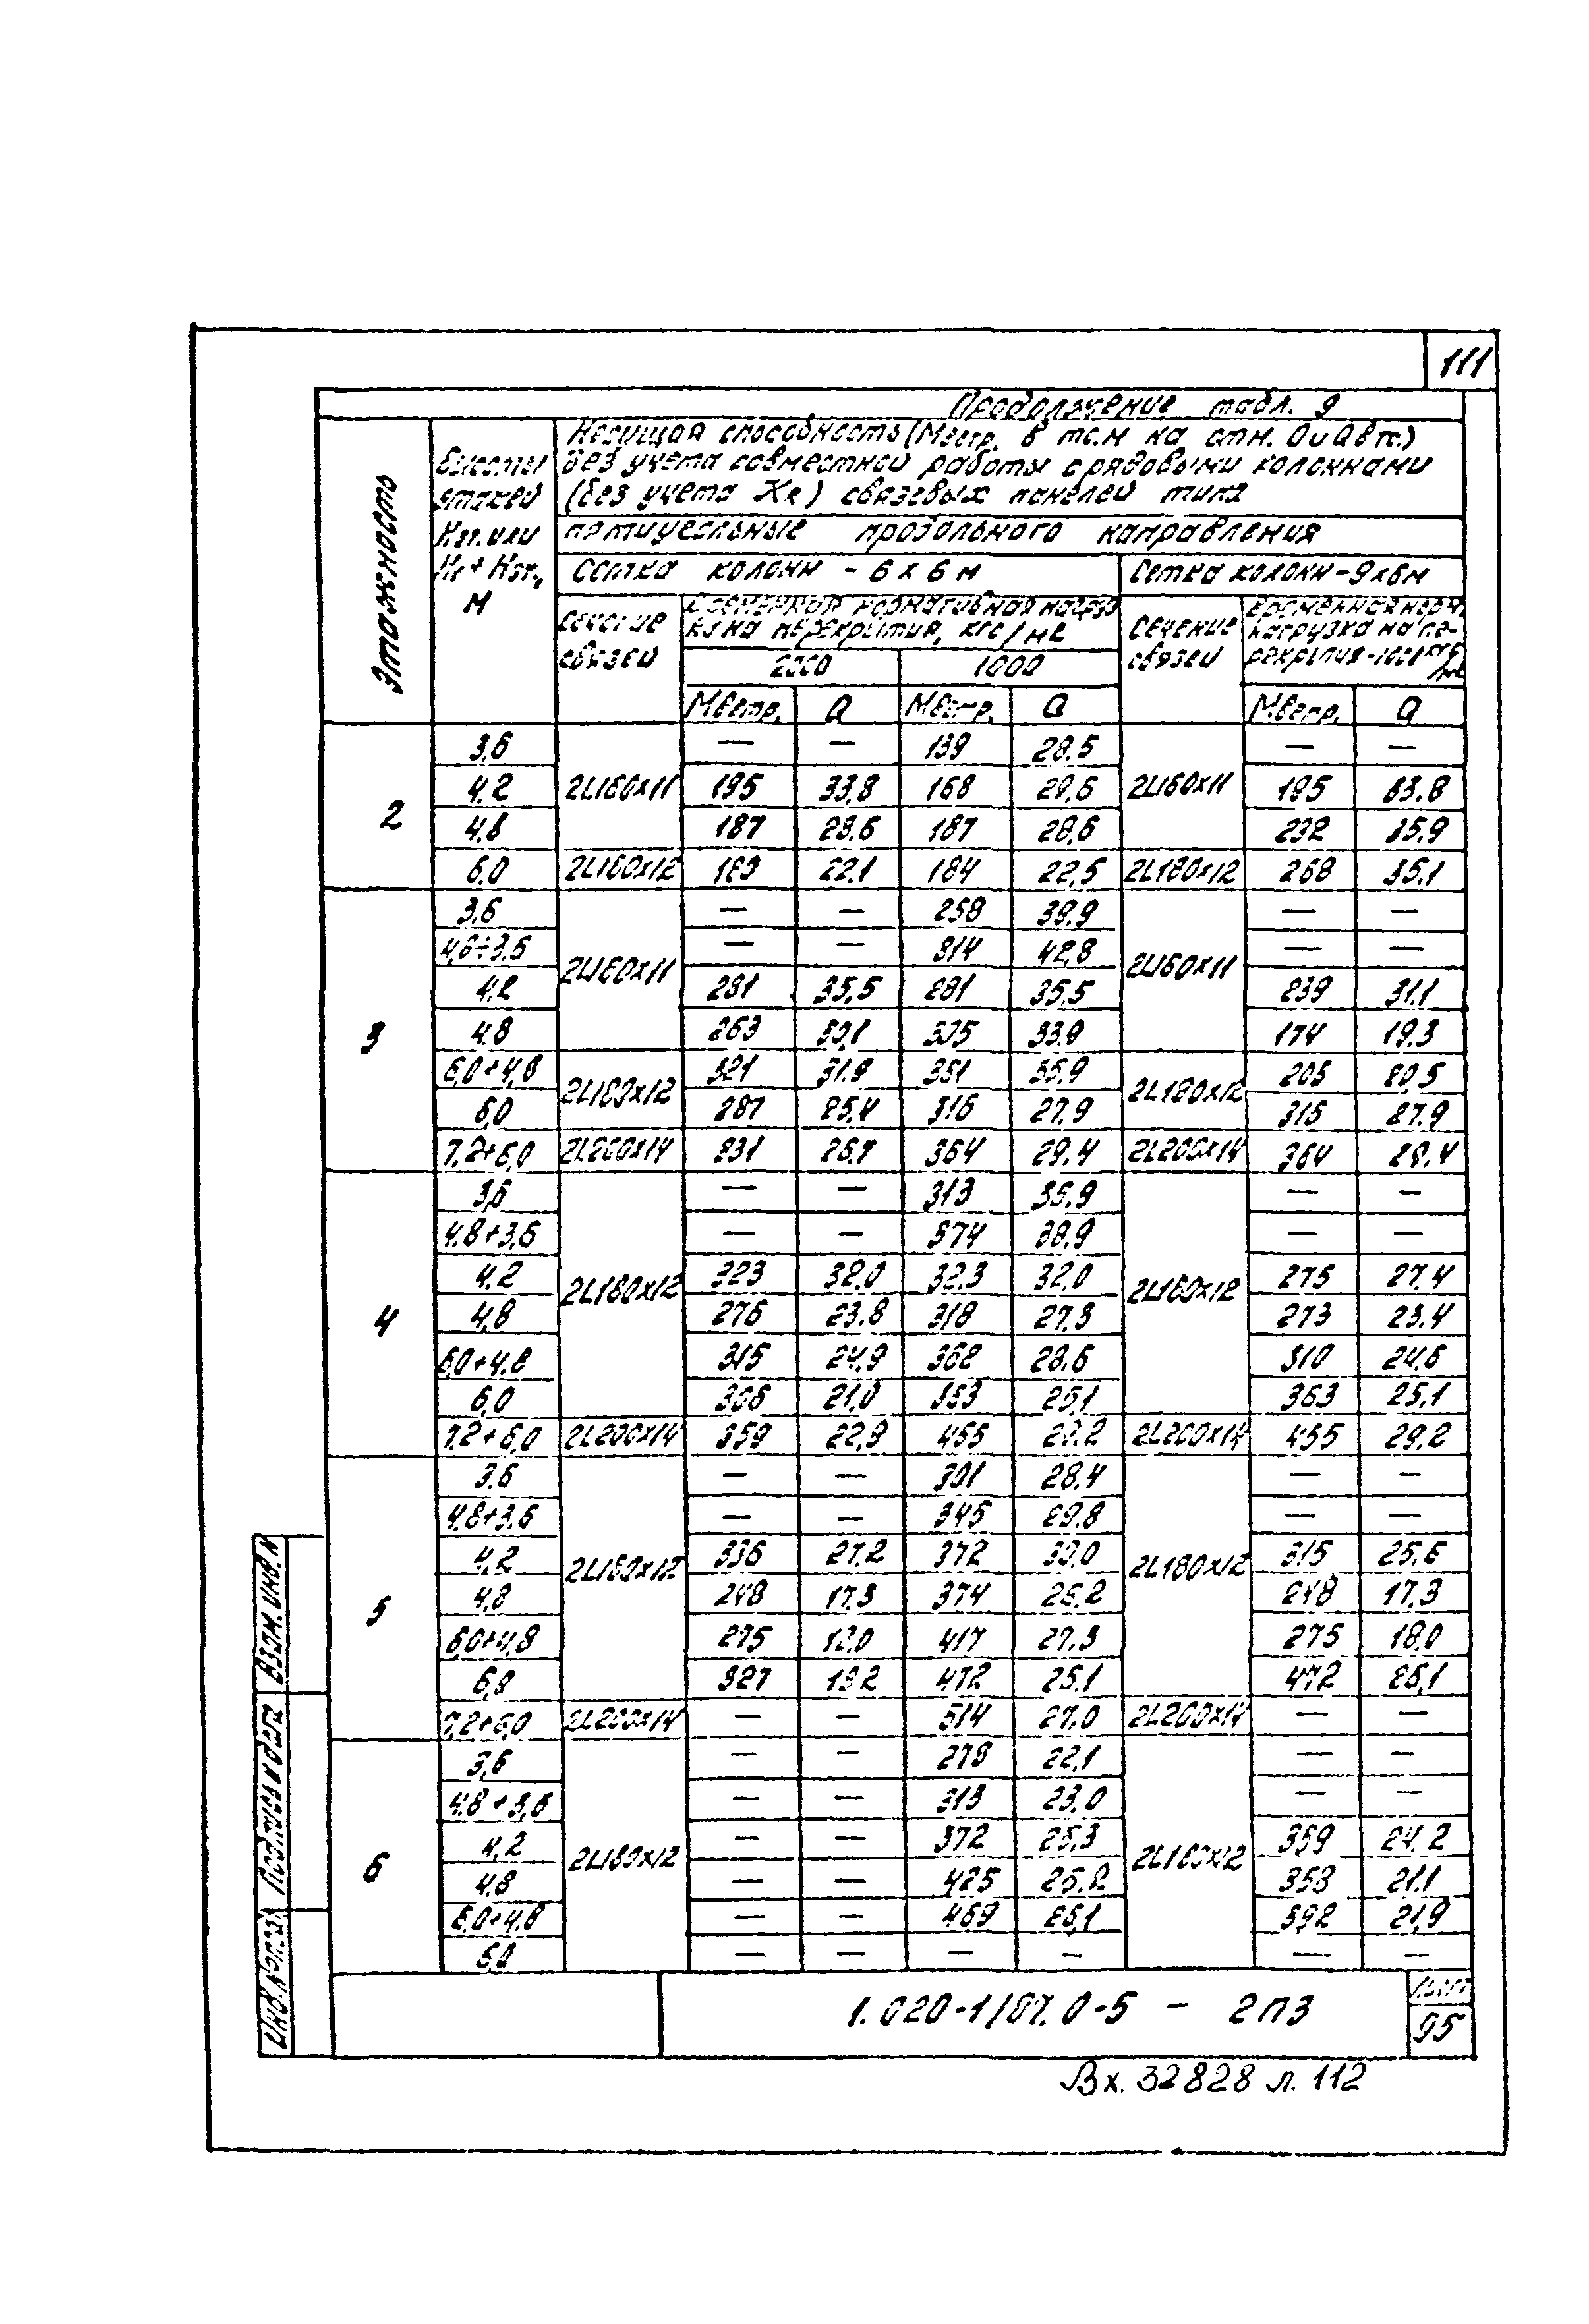 111
Продолжение табл. 9
Этажность
Высоты этажей Нэт. или Нг + Нэт, м
Несущая способность (Мвстр. в тс.м на отм. 0 и Q в тс.)
без учета совместной работы с рядовыми колоннами
(без учета Хк) связевых панелей типа
пятиугольные продольного направления
Сетка колонн - 6 x 6 м | Сетка колонн - 9x6 м
Сечение связей | Временная нормативная нагрузка на перекрытия, кгс/м2 | Сечение связей | Временная норм. нагрузка на перекрытия - кгс/м2
2000 | 1000
Мвстр. | Q | Мвстр. | Q | Мвстр. | Q
2 | 3,6 | 2L160x11 | — | — | 139 | 28.5 | 2L160x11 | — | —
4.2 | 195 | 33,8 | 168 | 29,6 | 195 | 33.8
4,8 | 187 | 28.6 | 187 | 28,6 | 232 | 35.9
6,0 | 2L160x12 | 22.1 | 184 | 22,5 | 2L180x12 | 268 | 35.1
3 | 3,6 | 2L160x11 | — | — | 258 | 39.9 | 2L160x11 | — | —
— | — | 314 | 42,8 | — | —
4,2 | 281 | 35,5 | 281 | 35,5 | 239 | 31.1
4.8 | 263 | 30,1 | 305 | 33.9 | 174 | 19.3
6,0+4,8 | 2L180x12 | 321 | 31.9 | 351 | 35,9 | 2L180x12 | 205 | 20,5
6,0 | 287 | 25,4 | 316 | 27,9 | 316 | 27.9
7,2+6,0 | 2L200x14 | 331 | 26,7 | 364 | 29.4 | 2L200x14 | 364 | 29.4
4 | 3,6 | 2L160x12 | — | — | 313 | 35,9 | 2L160x12 | — | —
4,8+3,6 | — | — | 374 | 38,9 | — | —
4,2 | 323 | 32,0 | 32,3 | 32,0 | 275 | 27.4
4,8 | 276 | 23.8 | 318 | 27,3 | 273 | 23.4
6,0+4.8 | 315 | 24,9 | 362 | 28.6 | 310 | 24,6
6,0 | 306 | 21,0 | 363 | 25,1 | 363 | 25,1
7,2+6,0 | 2L200x14 | 359 | 22,9 | 455 | 29.2 | 2L200x14 | 455 | 29,2
5 | 3.6 | 2L180x12 | — | — | 301 | 28.4 | 2L180x12 | — | —
4,8+3,6 | — | — | 345 | 29.8 | — | —
4,2 | 336 | 27,2 | 372 | 30,0 | 315 | 25,6
4,8 | 248 | 17.3 | 374 | 26.2 | 248 | 17,3
6,0+4,8 | 275 | 18,0 | 417 | 27,3 | 275 | 18,0
6,0 | 327 | 472 | 472
7,2+6,0 | 2L200x14 | — | — | 514 | 27,0 | 2L200x14 | — | —
6 | 3,6 | 2L180x12 | — | — | 278 | 22,1 | 2L180x12 | — | —
4,8+3,6 | — | — | 313 | 23,0 | — | —
4,2 | — | — | 372 | 25,3 | 359 | 24,2
4,8 | — | — | 425 | 25,2 | 358 | 21.1
6,0+4,8 | — | — | 469 | 26,1 | 392 | 21,9
6,0 | — | — | — | — | — | —
Инв.№ подл.
Подпись и дата
Взам. инв. №
1.020-1/87.0-5 - 2ПЗ
Лист
95
Вх. 32828 л. 112